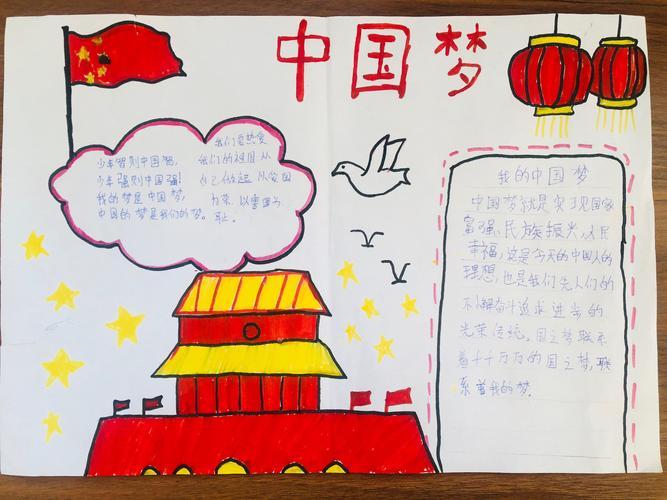 中国梦
少年智则中国智，
少年强则中国强！
我的梦是中国梦，
中国的梦是我们的梦。
我们要热爱
我们的祖国从
自己做起 从爱国
为荣 以害国为
耻。
我的中国梦
中国梦就是实现国家
富强、民族振兴、人民
幸福，这是今天的中国人的
理想，也是我们先人们的
不懈奋斗追求进步的
光荣传统。国之梦联系
着千千万万的国之梦，联
系着我的梦。